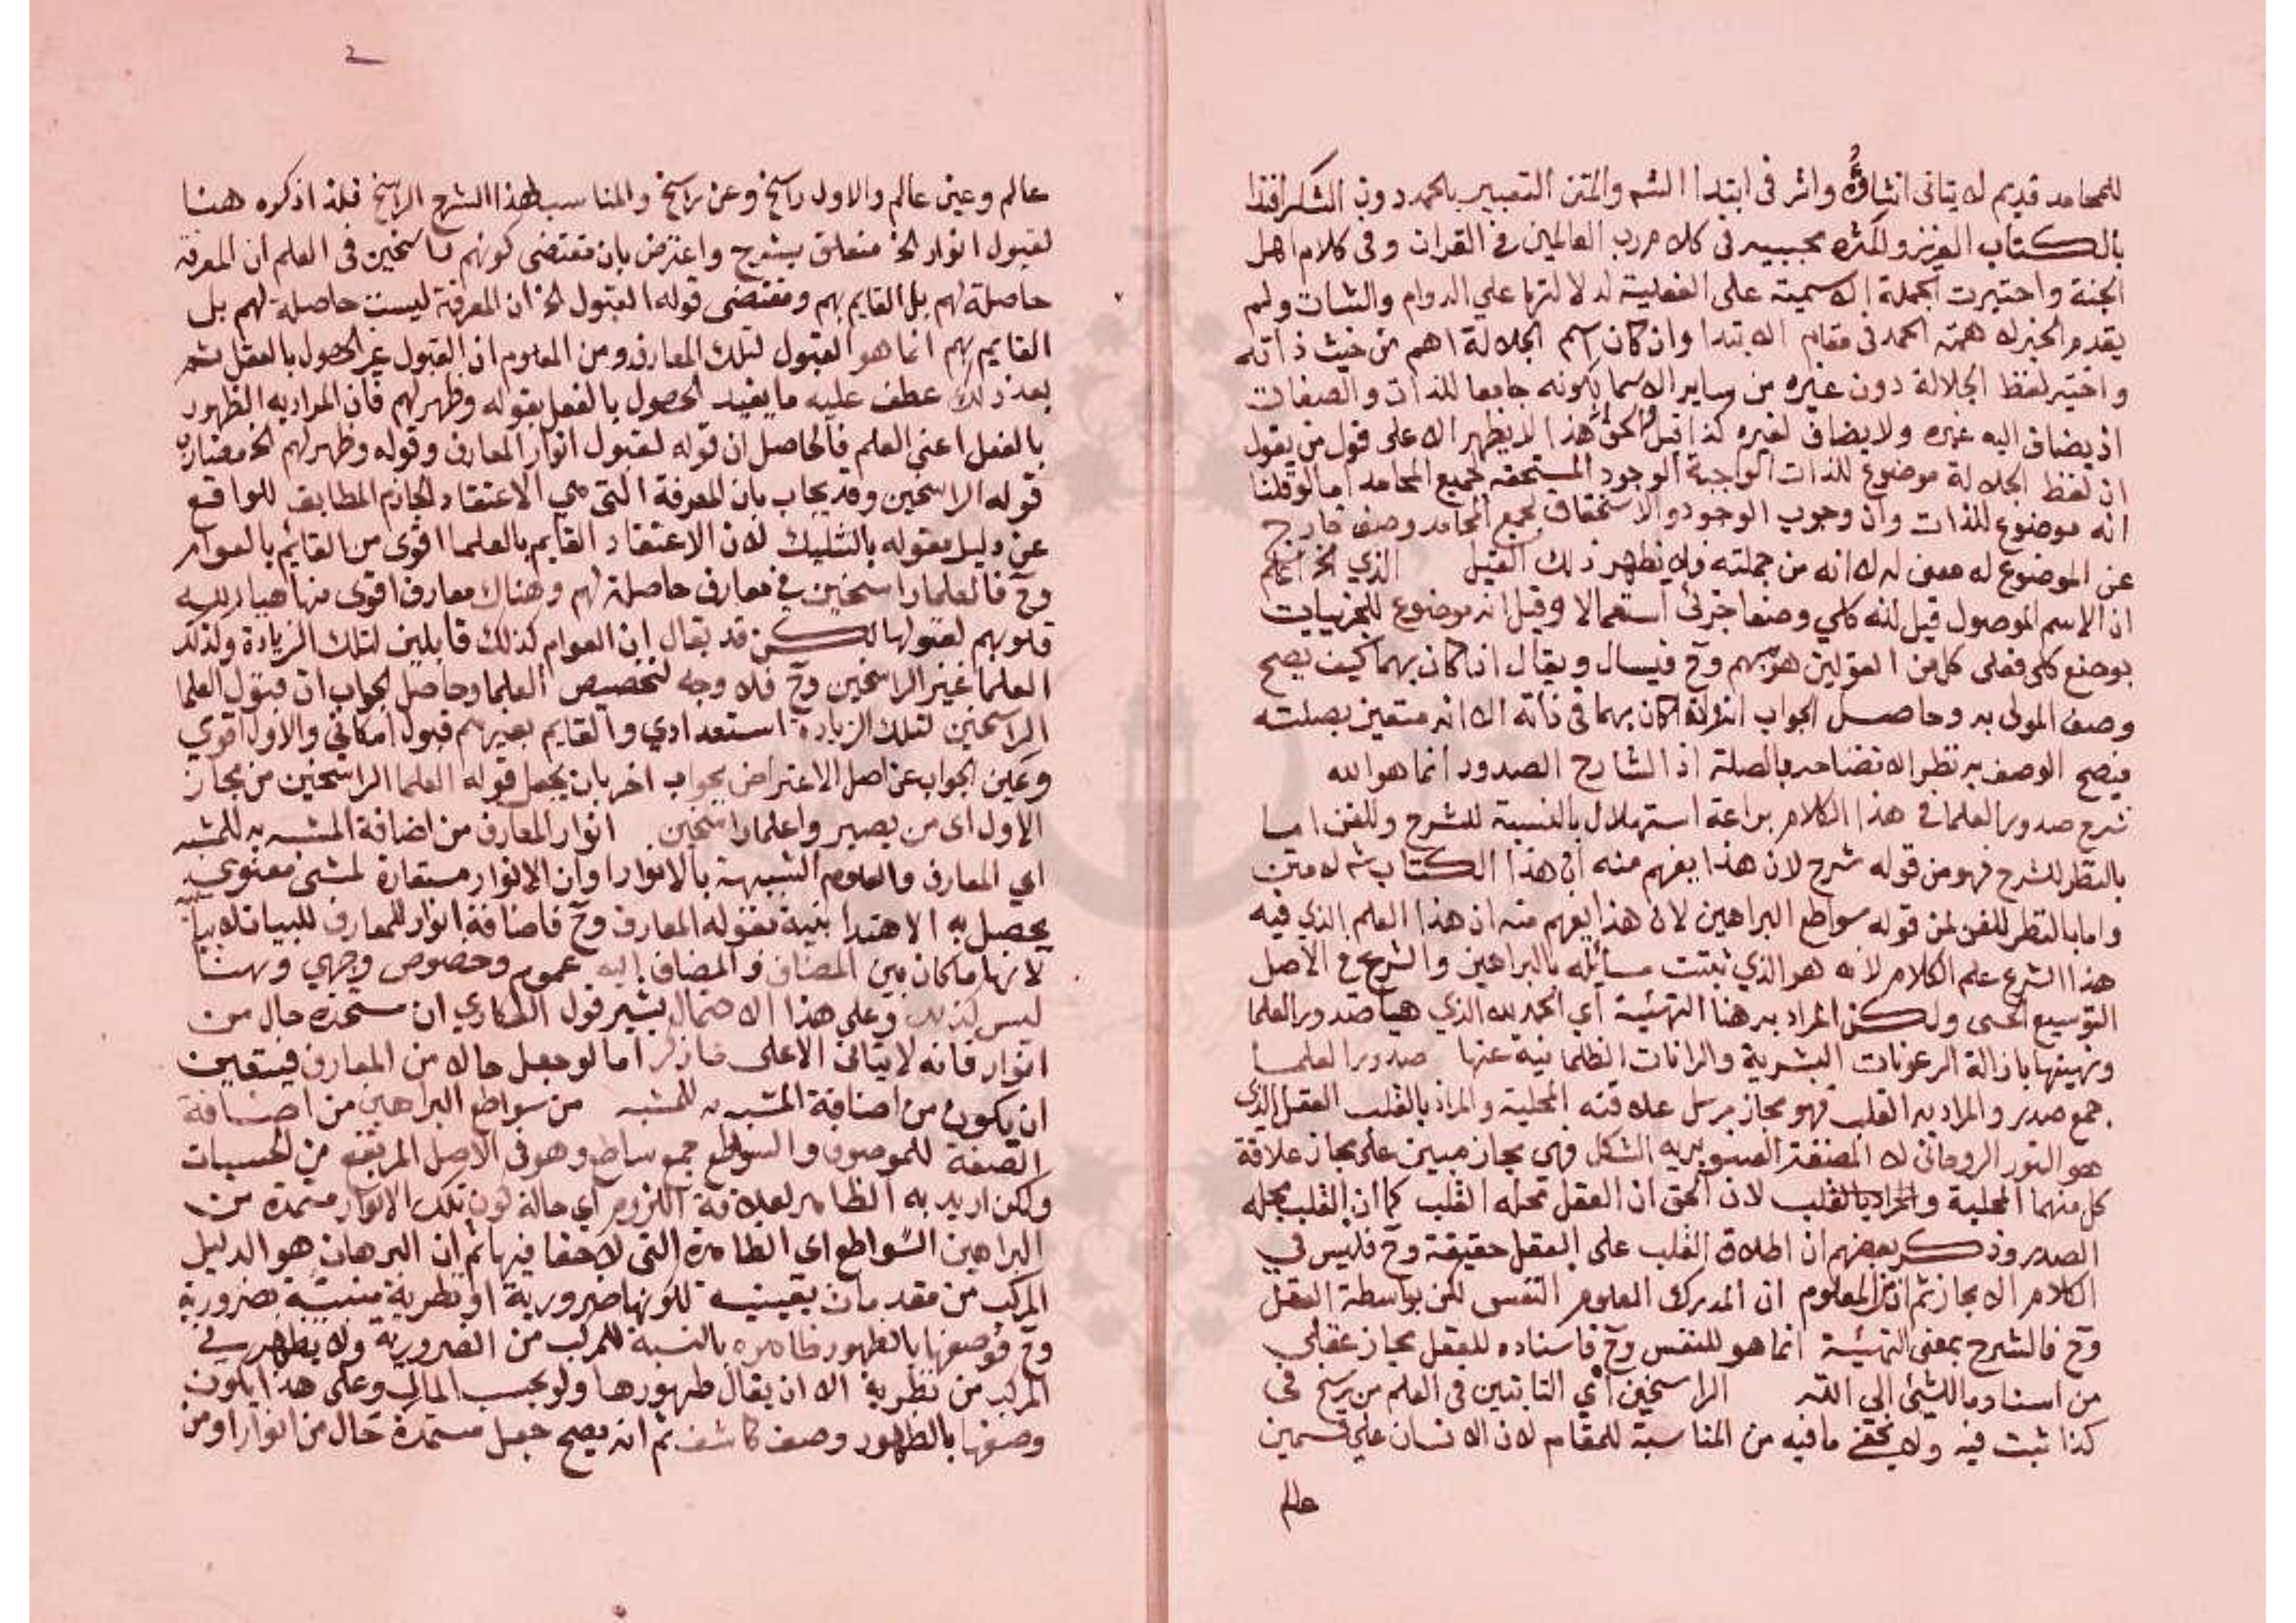 للمحامد قديم لا يتاتى انشاؤه واثر فى ابتدا الشر والمتن التعبير بالحمد دون الشكر اقتدا
بالكتاب العزيز ولكثرة مجيبه فى كلام رب العالمين فى القران وفى كلام اهل
الجنة واختيرت الجملة الاسمية على الفعلية لدلالتها على الدوام والثبات ولم
يقدم الخبر لاهمية الحمد فى مقام الابتدا وان كان اسم الجلالة اهم من حيث ذاته
واختير لفظ الجلالة دون غيره من ساير الاسما لكونه جامعا للذات والصفات
اذ يضاف اليه غيره ولا يضاف لغيره كذا قيل ولكن هذا لا يظهر الا على قول من يقول
ان لفظ الجلالة موضوع للذات الواجبة الوجود المستحقه لجميع المحامد اما لو قلنا
انه موضوع للذات وان وجوب الوجود والاستحقاق لجميع المحامد وصف خارج
عن الموضوع له معين له لا انه من جملته فلا يظهر ذلك القيل الذي الخ اعلم
ان الاسم الموصول قيل انه كلي وضعا جزئى استعمالا وقيل انه موضوع للجزييات
بوضع كلى فعلى كل من القولين هو مبهم وح فيسال ويقال اذا كان مبهما كيف يصح
وصف المولى به وحاصل الجواب انه وان كان مبهما فى ذاته الا انه متعين بصلته
فيصح الوصف به نظرا لاتضاحه بالصلة اذ الشارح الصدور انما هو الله
شرح صدور العلما فى هذا الكلام براعة استهلال بالنسبة للشرح وللفن اما
بالنظر للشرح فهو من قوله شرح لان هذا يفهم منه ان هذا الكتاب شرح له متن
واما بالنظر للفن فمن قوله سواطع البراهين لان هذا يفهم منه ان هذا العلم الذي فيه
هذا الشرع علم الكلام لانه هو الذي ثبتت مسائله بالبراهين والشرح فى الاصل
التوسيع الحسى ولكن المراد به هنا التهيئة اي الحمد لله الذي هيا صدور العلما
وتهيئتها بازالة الرعونات البشرية والرانات الظلمانية عنها صدور العلما
جمع صدر والمراد به القلب فهو مجاز مرسل علاقته المحلية والمراد بالقلب العقل الذي
هو النور الروحانى لا المضغة الصنوبريه الشكل فهي مجاز مبني على مجاز علاقة
كل منهما المحلية والمراد بالقلب لان الحق ان العقل محله القلب كما ان القلب محله
الصدر وذكر بعضهم ان اطلاق القلب على العقل حقيقة وح فليس في
الكلام الا مجاز ثم ان من المعلوم ان المدرك العلوم النفس لكن بواسطة العقل
وح فالشرح بمعنى التهيئة انما هو للنفس وح فاسناده للعقل مجاز عقلي
من اسناد ما للشئ الى الته الراسخين اي الثابتين فى العلم من رسخ فى
كذا ثبت فيه ولا يخفى ما فيه من المناسبة للمقام لان الانسان على قسمين
عالم
2
عالم وغير عالم والاول راسخ وغير راسخ والمناسب لهذا الشرح الراسخ فلذا ذكره هنا
لقبول انوار الخ متعلق بشرح واعترض بان مقتضى كونهم راسخين فى العلم ان المعرفة
حاصلة لهم بل القايم بهم ومقتضى قوله القبول الخ ان المعرفة ليست حاصلة لهم بل
القايم بهم انما هو القبول لتلك المعارف ومن المعلوم ان القبول غير الحصول بالفعل ثم
بعد ذلك عطف عليه ما يفيد الحصول بالفعل بقوله وظهر لهم فان المراد به الظهور
بالفعل اعني العلم فالحاصل ان قوله لقبول انوار المعارف وقوله وظهر لهم الخ مضاد
قوله الراسخين وقد يجاب بان المعرفة التي هي الاعتقاد الجازم المطابق للواقع
عن دليل مقوله بالتشكيك لان الاعتقاد القايم بالعلما اقوى من القايم بالعوام
وح فالعلما راسخين في معارف حاصلة لهم وهناك معارف اقوى منها هيا الله
قلوبهم لقبولها لكن قد يقال ان العوام كذلك قابلين لتلك الزيادة وكذلك
العلما غير الراسخين وح فلا وجه لتخصيص العلما وحاصل الجواب ان قبول العلما
الراسخين لتلك الزيادة استعدادي والقايم بغيرهم قبول امكاني والاول اقوى
ويمكن الجواب عن اصل الاعتراض بجواب اخر بان يجعل قوله العلما الراسخين من مجاز
الاول اى من يصير واعلما راسخين انوار المعارف من اضافة المشبه به للمشبه
اي المعارف والعلوم الشبيهة بالانوار او ان الانوار مستعارة لمشئ معنوى
يحصل به الاهتدا بنية بقوله المعارف وح فاضافة انوار للمعارف للبيان لا بيانية
لانها ما كان بين المضاف والمضاف اليه عموم وخصوص وجهي وهنا
ليس كذلك وعلى هذا الاحتمال يشير قول الطكاري ان مستمدة حال من
انوار فانه لا يتاتى الا على ما ذكر اما لو جعل حالا من المعارف فيتعين
ان يكون من اضافة المشبه به للمشبه من سواطع البراهين من اضافة
الصفة للموصوف والسواطع جمع ساطع وهو فى الاصل المرتفع من الحسيات
ولكن اريد به الظاهر لعلاقة اللزوم اي حالة كون تلك الانوار مستمدة من
البراهين السواطع اى الظاهرة التي لا خفا فيها ثم ان البرهان هو الدليل
المركب من مقدمات يقينيه لكونها ضرورية او نظرية منتهية بضرورية
وح فوصفها بالظهور ظاهره بالنسبة للمركب من الضرورية ولا يظهر في
المركب من نظرية الا ان يقال ظهورها ولو بحسب المال وعلى هذا يكون
وصفها بالظهور وصف كاشف ثم انه يصح جعل مستمدة حال من انوار او من